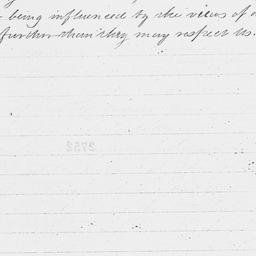 - being influenced by the views of
further than they may respect us.
2752